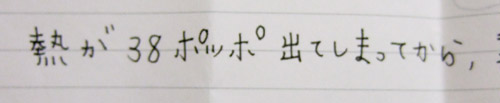 熱が 38 ポッポ 出てしまってから,